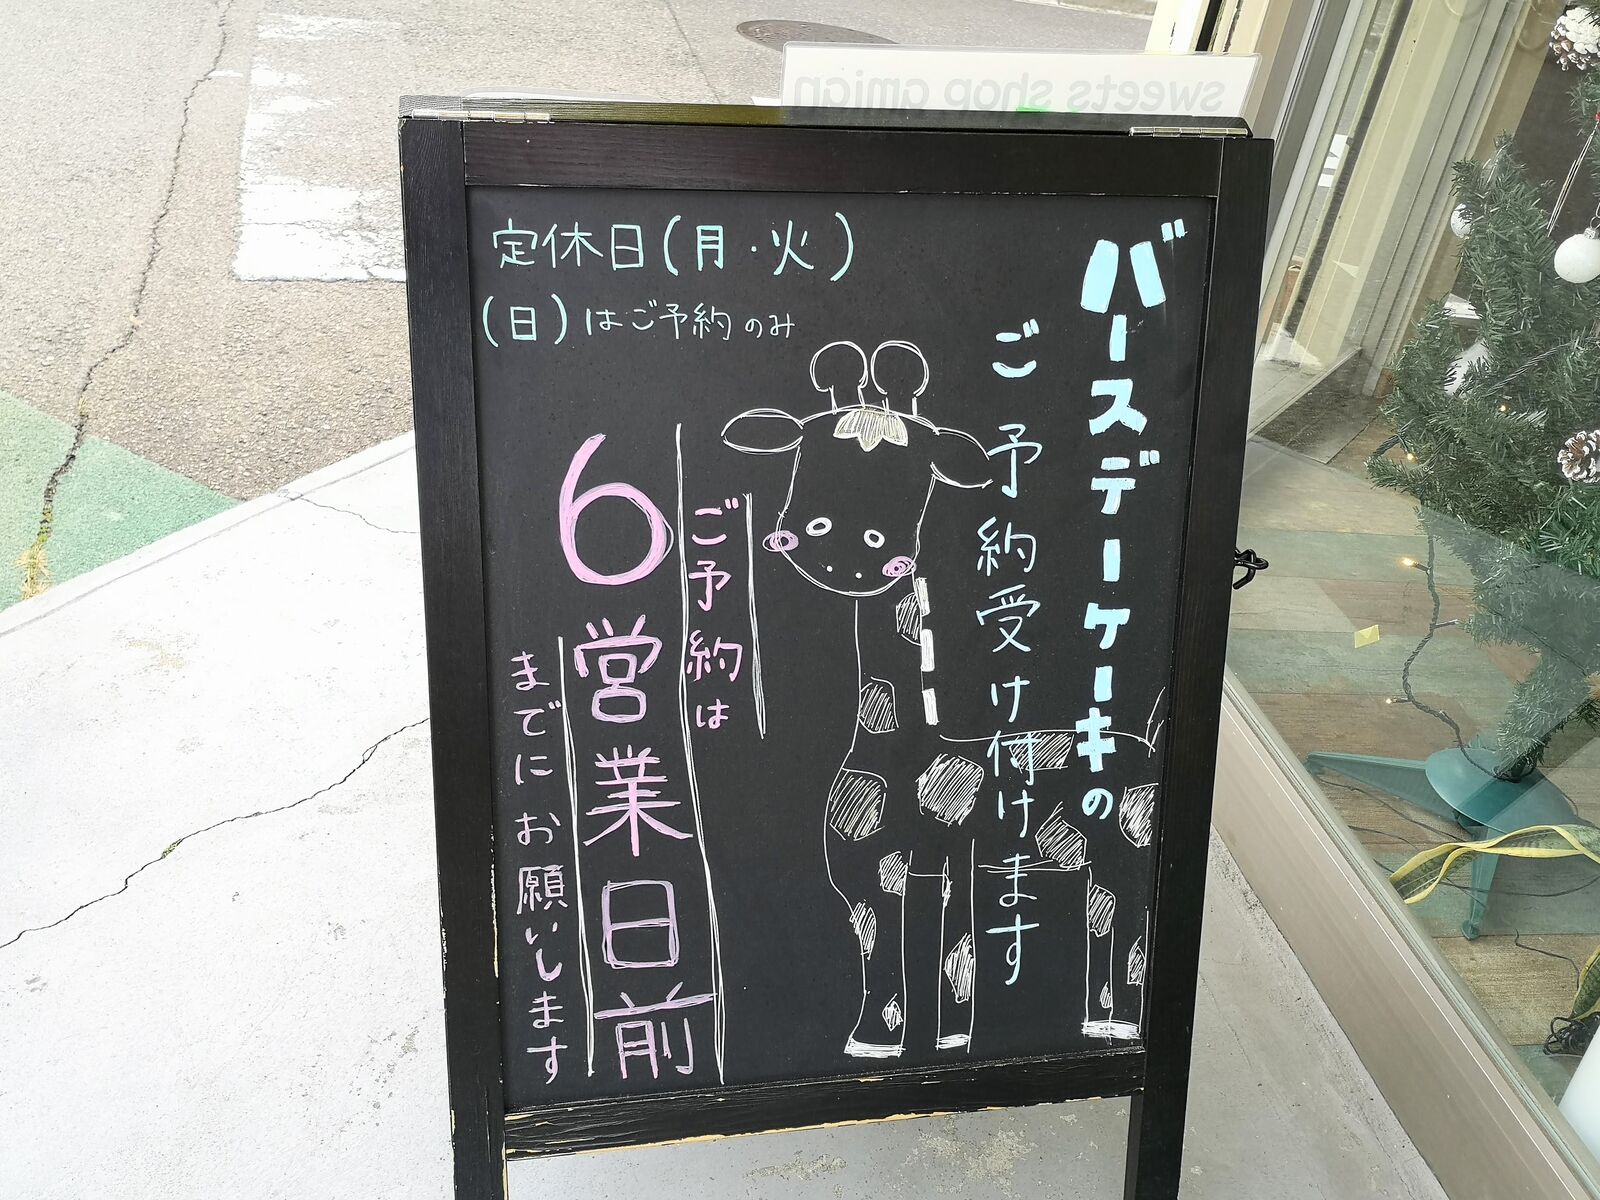 sweets shop amign
定休日(月・火)
(日)はご予約のみ
バースデーケーキの
ご予約受け付けます
ご予約は
6営業日前
までにお願いします